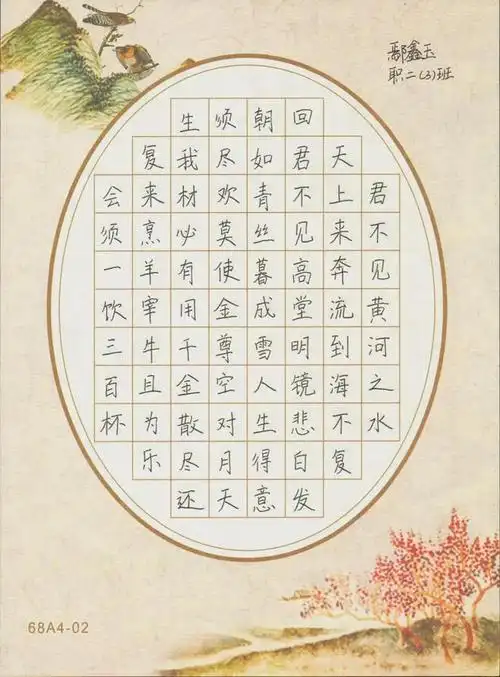 鄢鑫玉
职二(3)班
君不见黄河之水
天上来奔流到海不复
回君不见高堂明镜悲白发
朝如青丝暮成雪人生得意
须尽欢莫使金尊空对月天
生我材必有用千金散尽还
复来烹羊宰牛且为乐
会须一饮三百杯
68A4-02